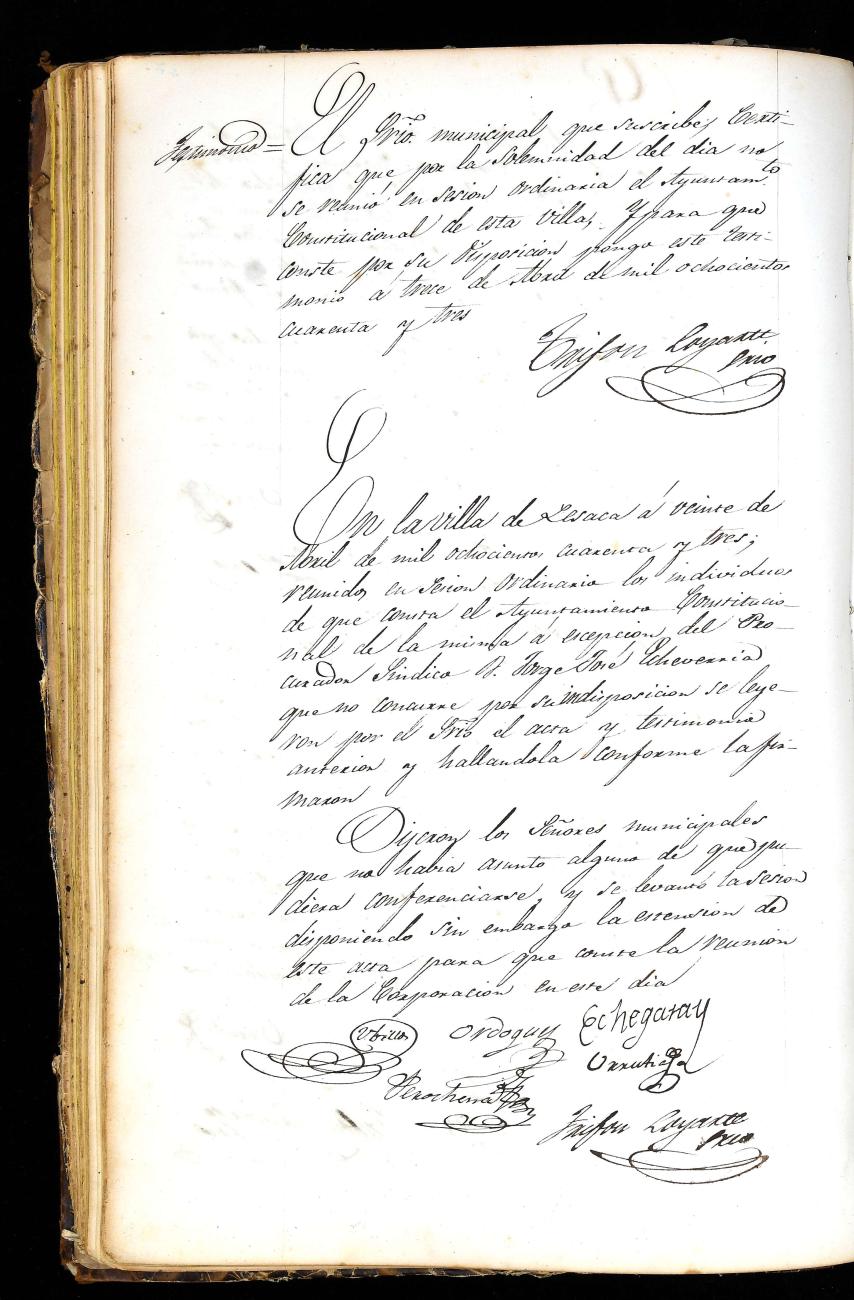 Testimonio =
El Srio. municipal que suscribe, Certi-
fica que por la solemnidad del dia no
se reunió en sesion ordinaria el Ayuntamto
Constitucional de esta Villa, Y para que
conste por su disposicion pongo este testi-
monio á trece de Abril de mil ochocientos
cuarenta y tres
Trifon Loyarte
Srio
En la villa de Lesaca á veinte de
Abril de mil ochocientos cuarenta y tres;
reunidos en sesion ordinaria los individuos
de que consta el Ayuntamiento Constitucio-
nal de la misma á escepcion del Pro-
curador Sindico D. Jorge José Echeverria
que no concurre por su indisposicion se leye-
ron por el Srio el acta y testimonio
anterior y hallandola conforme la fir-
maron
Dijeron los Señores municipales
que no habia asunto alguno de que pu-
diera conferenciarse, y se levantó la sesion
disponiendo sin embargo la estension de
este acta para que conste la reunion
de la Corporacion en este dia
Ordoguy Echegaray
Urrutia
Trifon Loyarte
Srio